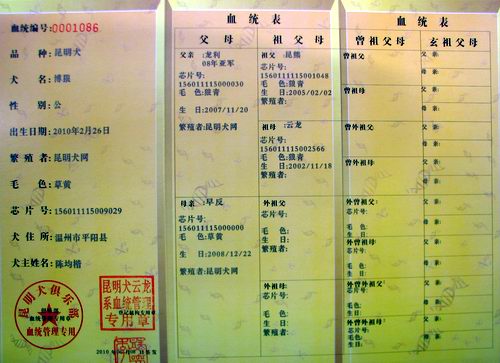 血统编号:0001086
品 种:昆明犬
犬 名:博狼
性 别:公
出生日期:2010年2月26日
繁殖者:昆明犬网
毛 色:草黄
芯 片 号:156011115009029
犬 住 所:温州市平阳县
犬主姓名:陈均楷
昆明犬俱乐部
血统管理专用
昆明犬云龙
系血统管理
专用章
血统表
父 母
祖 父 母
父亲:龙利
08年亚军
芯片号:
156011115000030
毛 色:狼青
生 日:2007/11/20
繁殖者:昆明犬网
母亲:早反
芯片号:
156011115000000
毛 色:草黄
生 日:2008/12/22
繁殖者:昆明犬网
祖父:昆熊
芯片号:
156011115001048
毛 色:狼青
生 日:2005/02/02
繁殖者:
祖母:云龙
芯片号:
156011115002566
毛 色:狼青
生 日:2002/11/18
繁殖者:
外祖父:
芯片号:
毛 色:
生 日:
繁殖者:
外祖母:
芯片号:
毛 色:
生 日:
繁殖者:
血统表
曾祖父母
玄祖父母
曾祖父:
曾祖母:
曾外祖父:
曾外祖母:
外曾祖父:
芯片号:
毛 色:
生 日:
外曾祖母:
芯片号:
毛 色:
生 日:
外曾外祖父:
芯片号:
毛 色:
生 日:
外曾外祖母:
芯片号:
毛 色:
生 日:
父 亲:
母 亲:
父 亲:
母 亲:
父 亲:
母 亲:
父 亲:
母 亲:
父 亲:
母 亲:
父 亲:
母 亲:
父 亲:
母 亲:
父 亲:
母 亲: